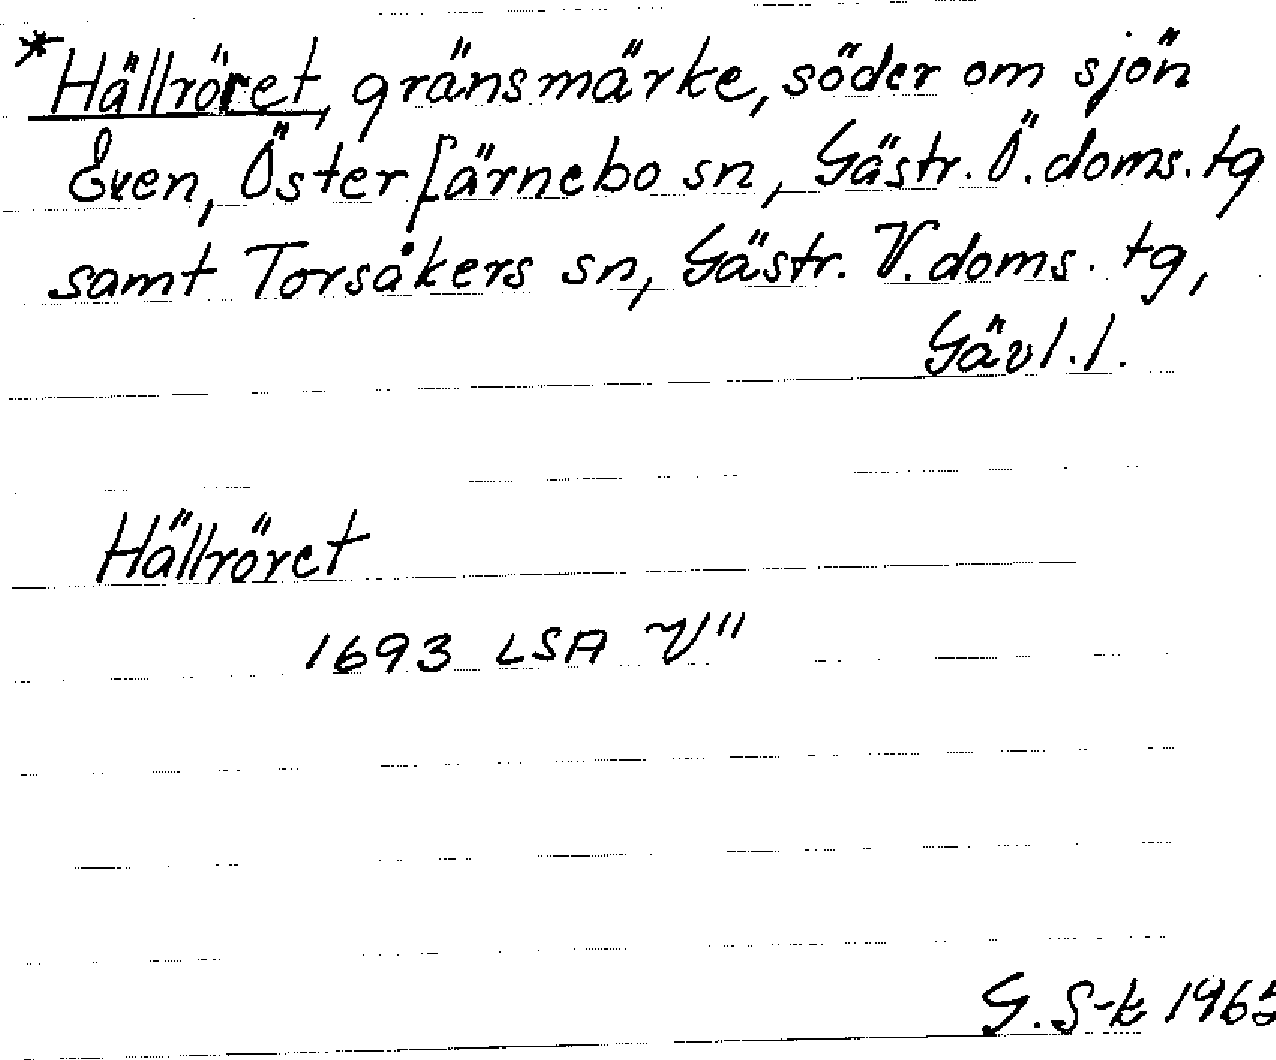 *Hällröret, gränsmärke, söder om sjön
Even, Österfärnebo sn, Gästr. Ö. doms. tg
samt Torsåkers sn, Gästr. V. doms. tg,
Gävl. l.
Hällröret
1693 LSA V11
G. S-k 1965